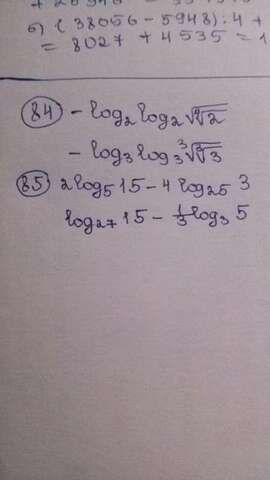 б) (38056 - 5948) : 4 +
= 8027 + 4535 = 1
84) - log₂ log₂ √∜2
- log₃ log₃ ∛∛3
85) 2 log₅ 15 - 4 log₂₅ 3
log₂₇ 15 - ⅓ log₃ 5